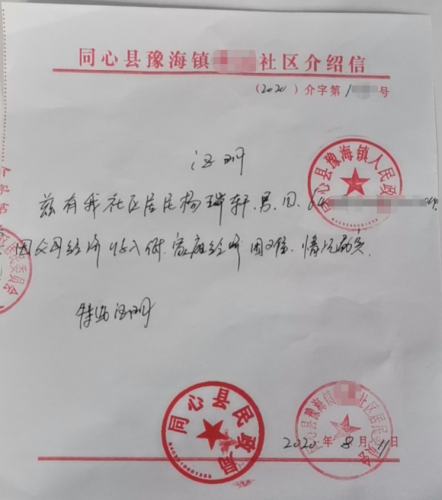 同心县豫海镇 社区介绍信
(2020) 介字第1 号
证明
兹有我社区居民杨瑞轩,男,回,64
因父母经济收入低,家庭经济困难,情况属实,
特此证明
同心县豫海镇人民政
同心县民政局
同心县豫海镇 社区居民委员会
2020年8月11日